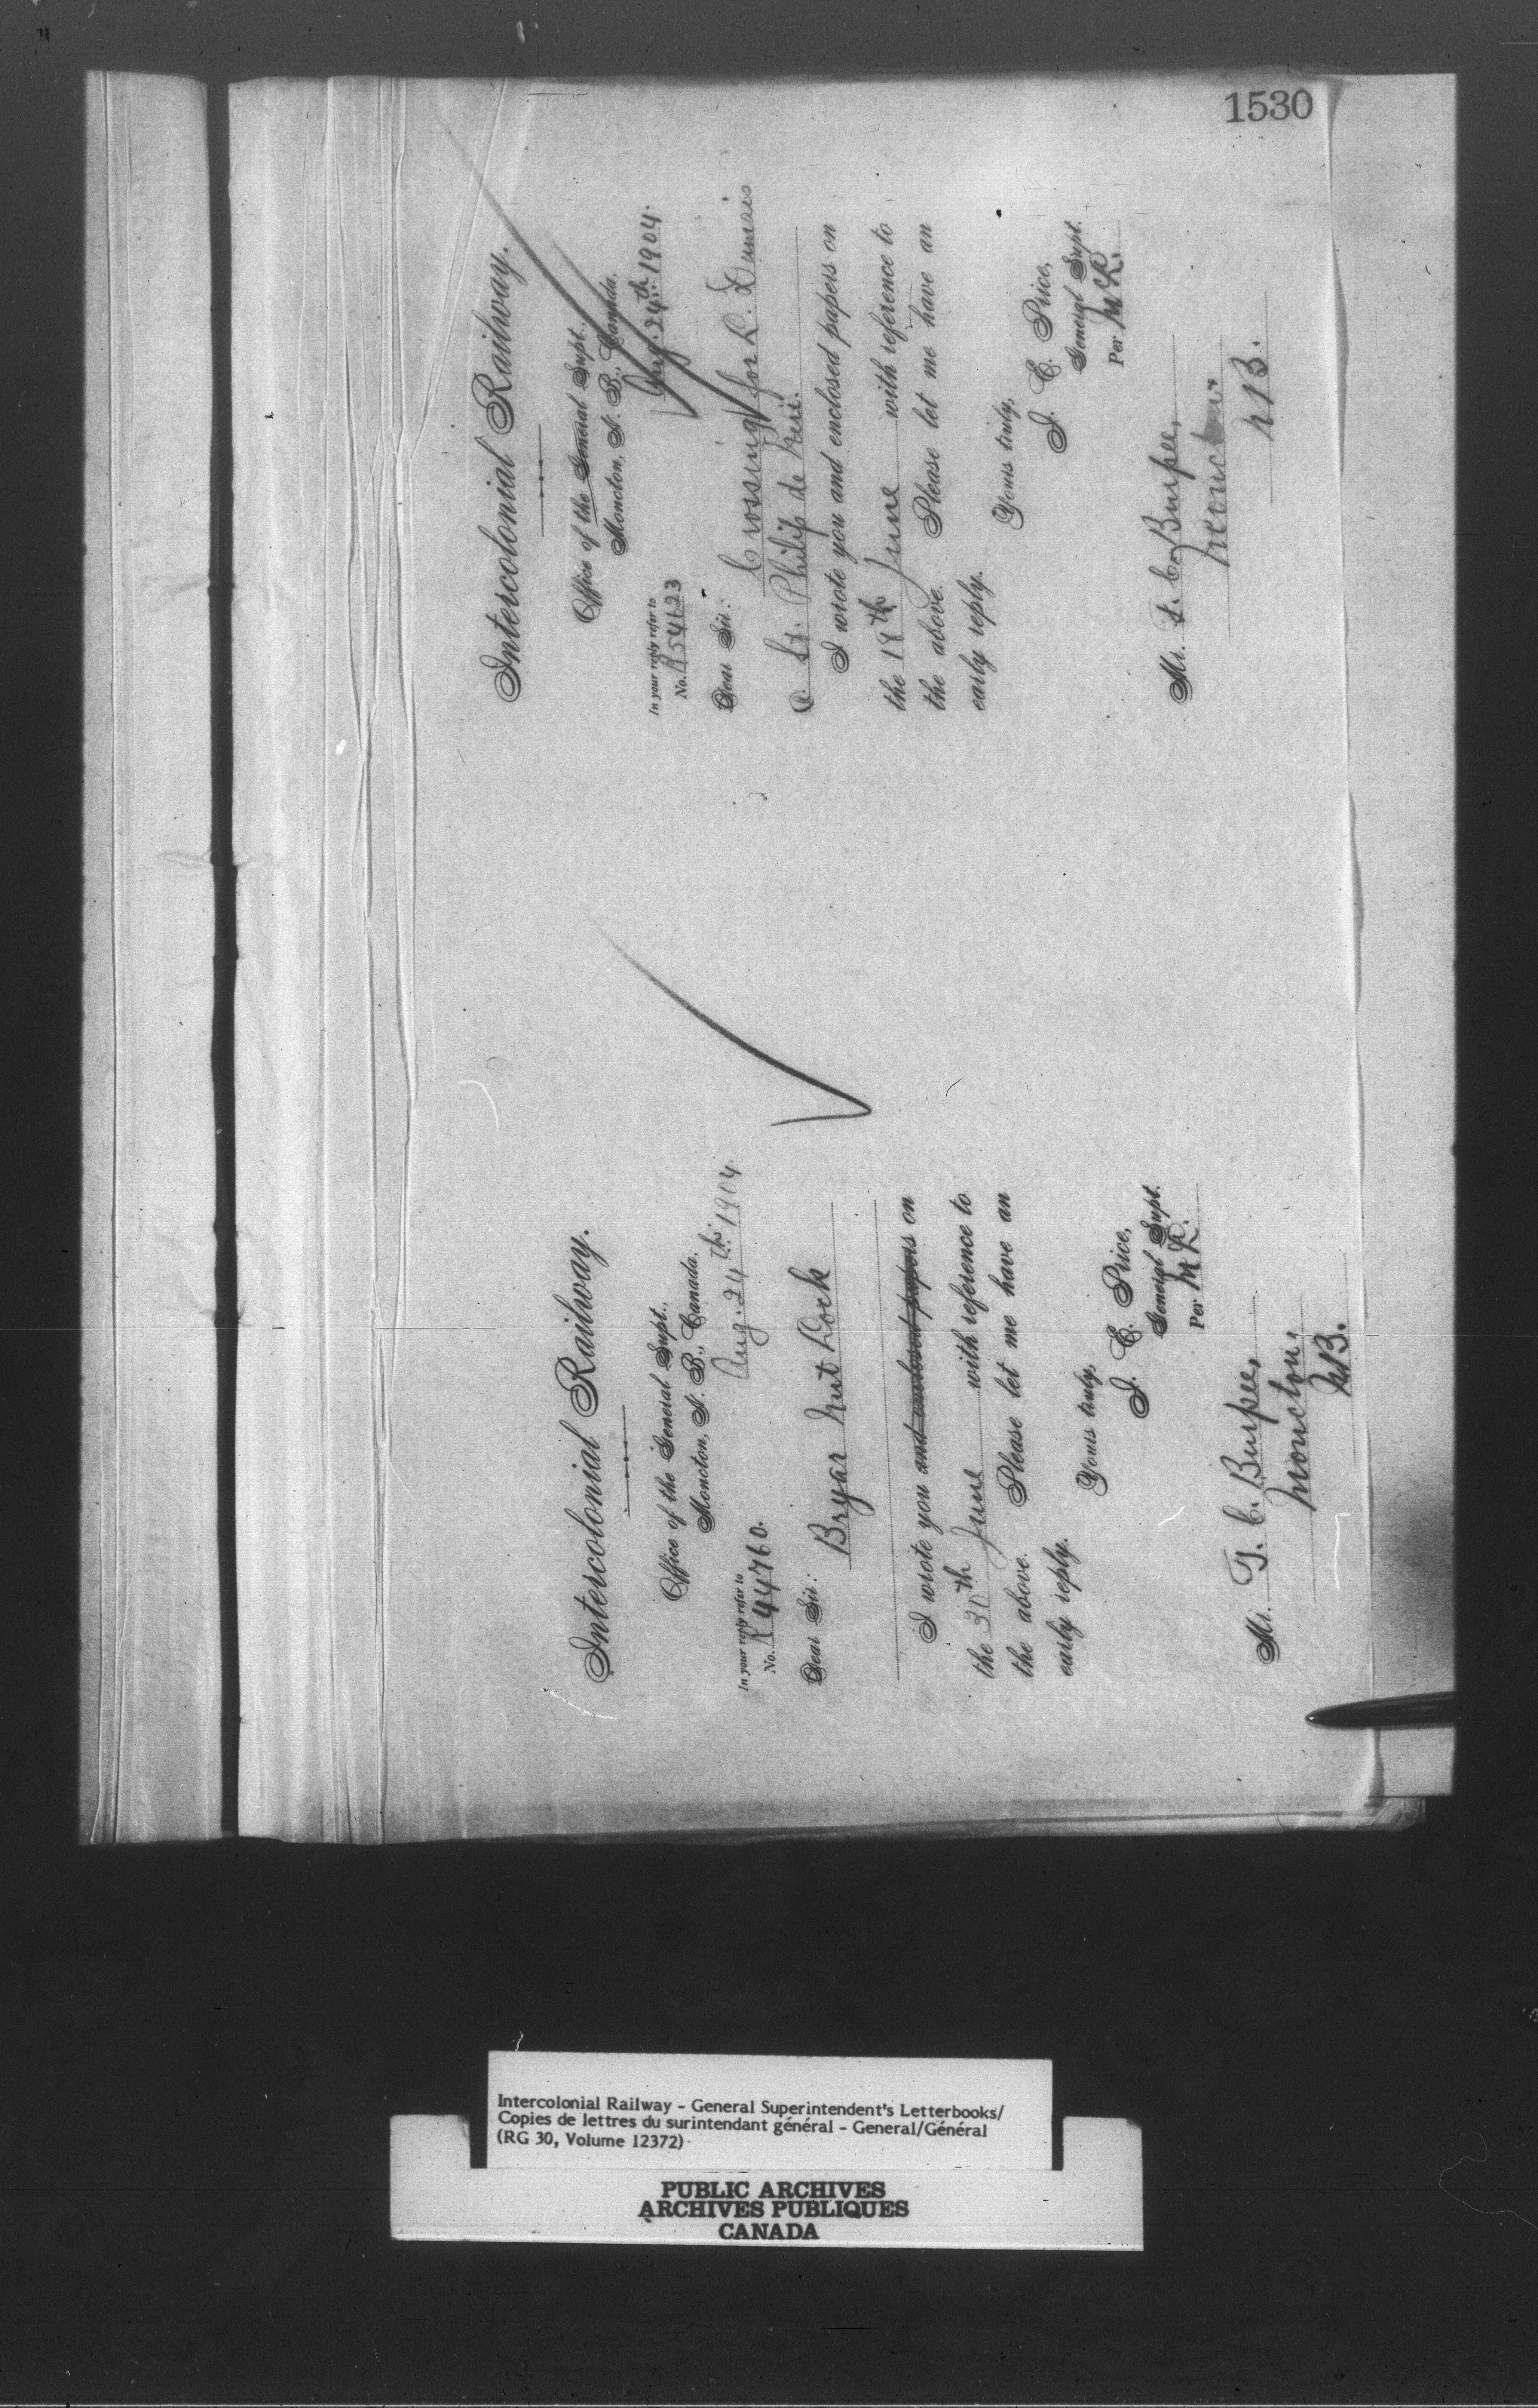 1530
Intercolonial Railway.
Office of the General Supt.,
Moncton, N. B., Canada,
Aug. 24th 1904.
In your reply refer to
No. R44760.
Dear Sir:
Bryar Nut Lock
I wrote you and enclosed papers on
the 30th June with reference to
the above. Please let me have an
early reply.
Yours truly,
J. E. Price,
General Supt.
Per
Mr. T. C. Burpee,
Moncton,
NB.
Intercolonial Railway.
Office of the General Supt.,
Moncton, N. B., Canada,
Aug. 24th 1904.
In your reply refer to
No.
Dear Sir:
Crossing for L. Dumais
@ St. Philip de Neri.
I wrote you and enclosed papers on
the 18th June with reference to
the above. Please let me have an
early reply.
Yours truly,
J. E. Price,
General Supt.
Per
Mr. T. C. Burpee,
Moncton
NB.
Intercolonial Railway - General Superintendent's Letterbooks/
Copies de lettres du surintendant général - General/Général
(RG 30, Volume 12372)
PUBLIC ARCHIVES
ARCHIVES PUBLIQUES
CANADA